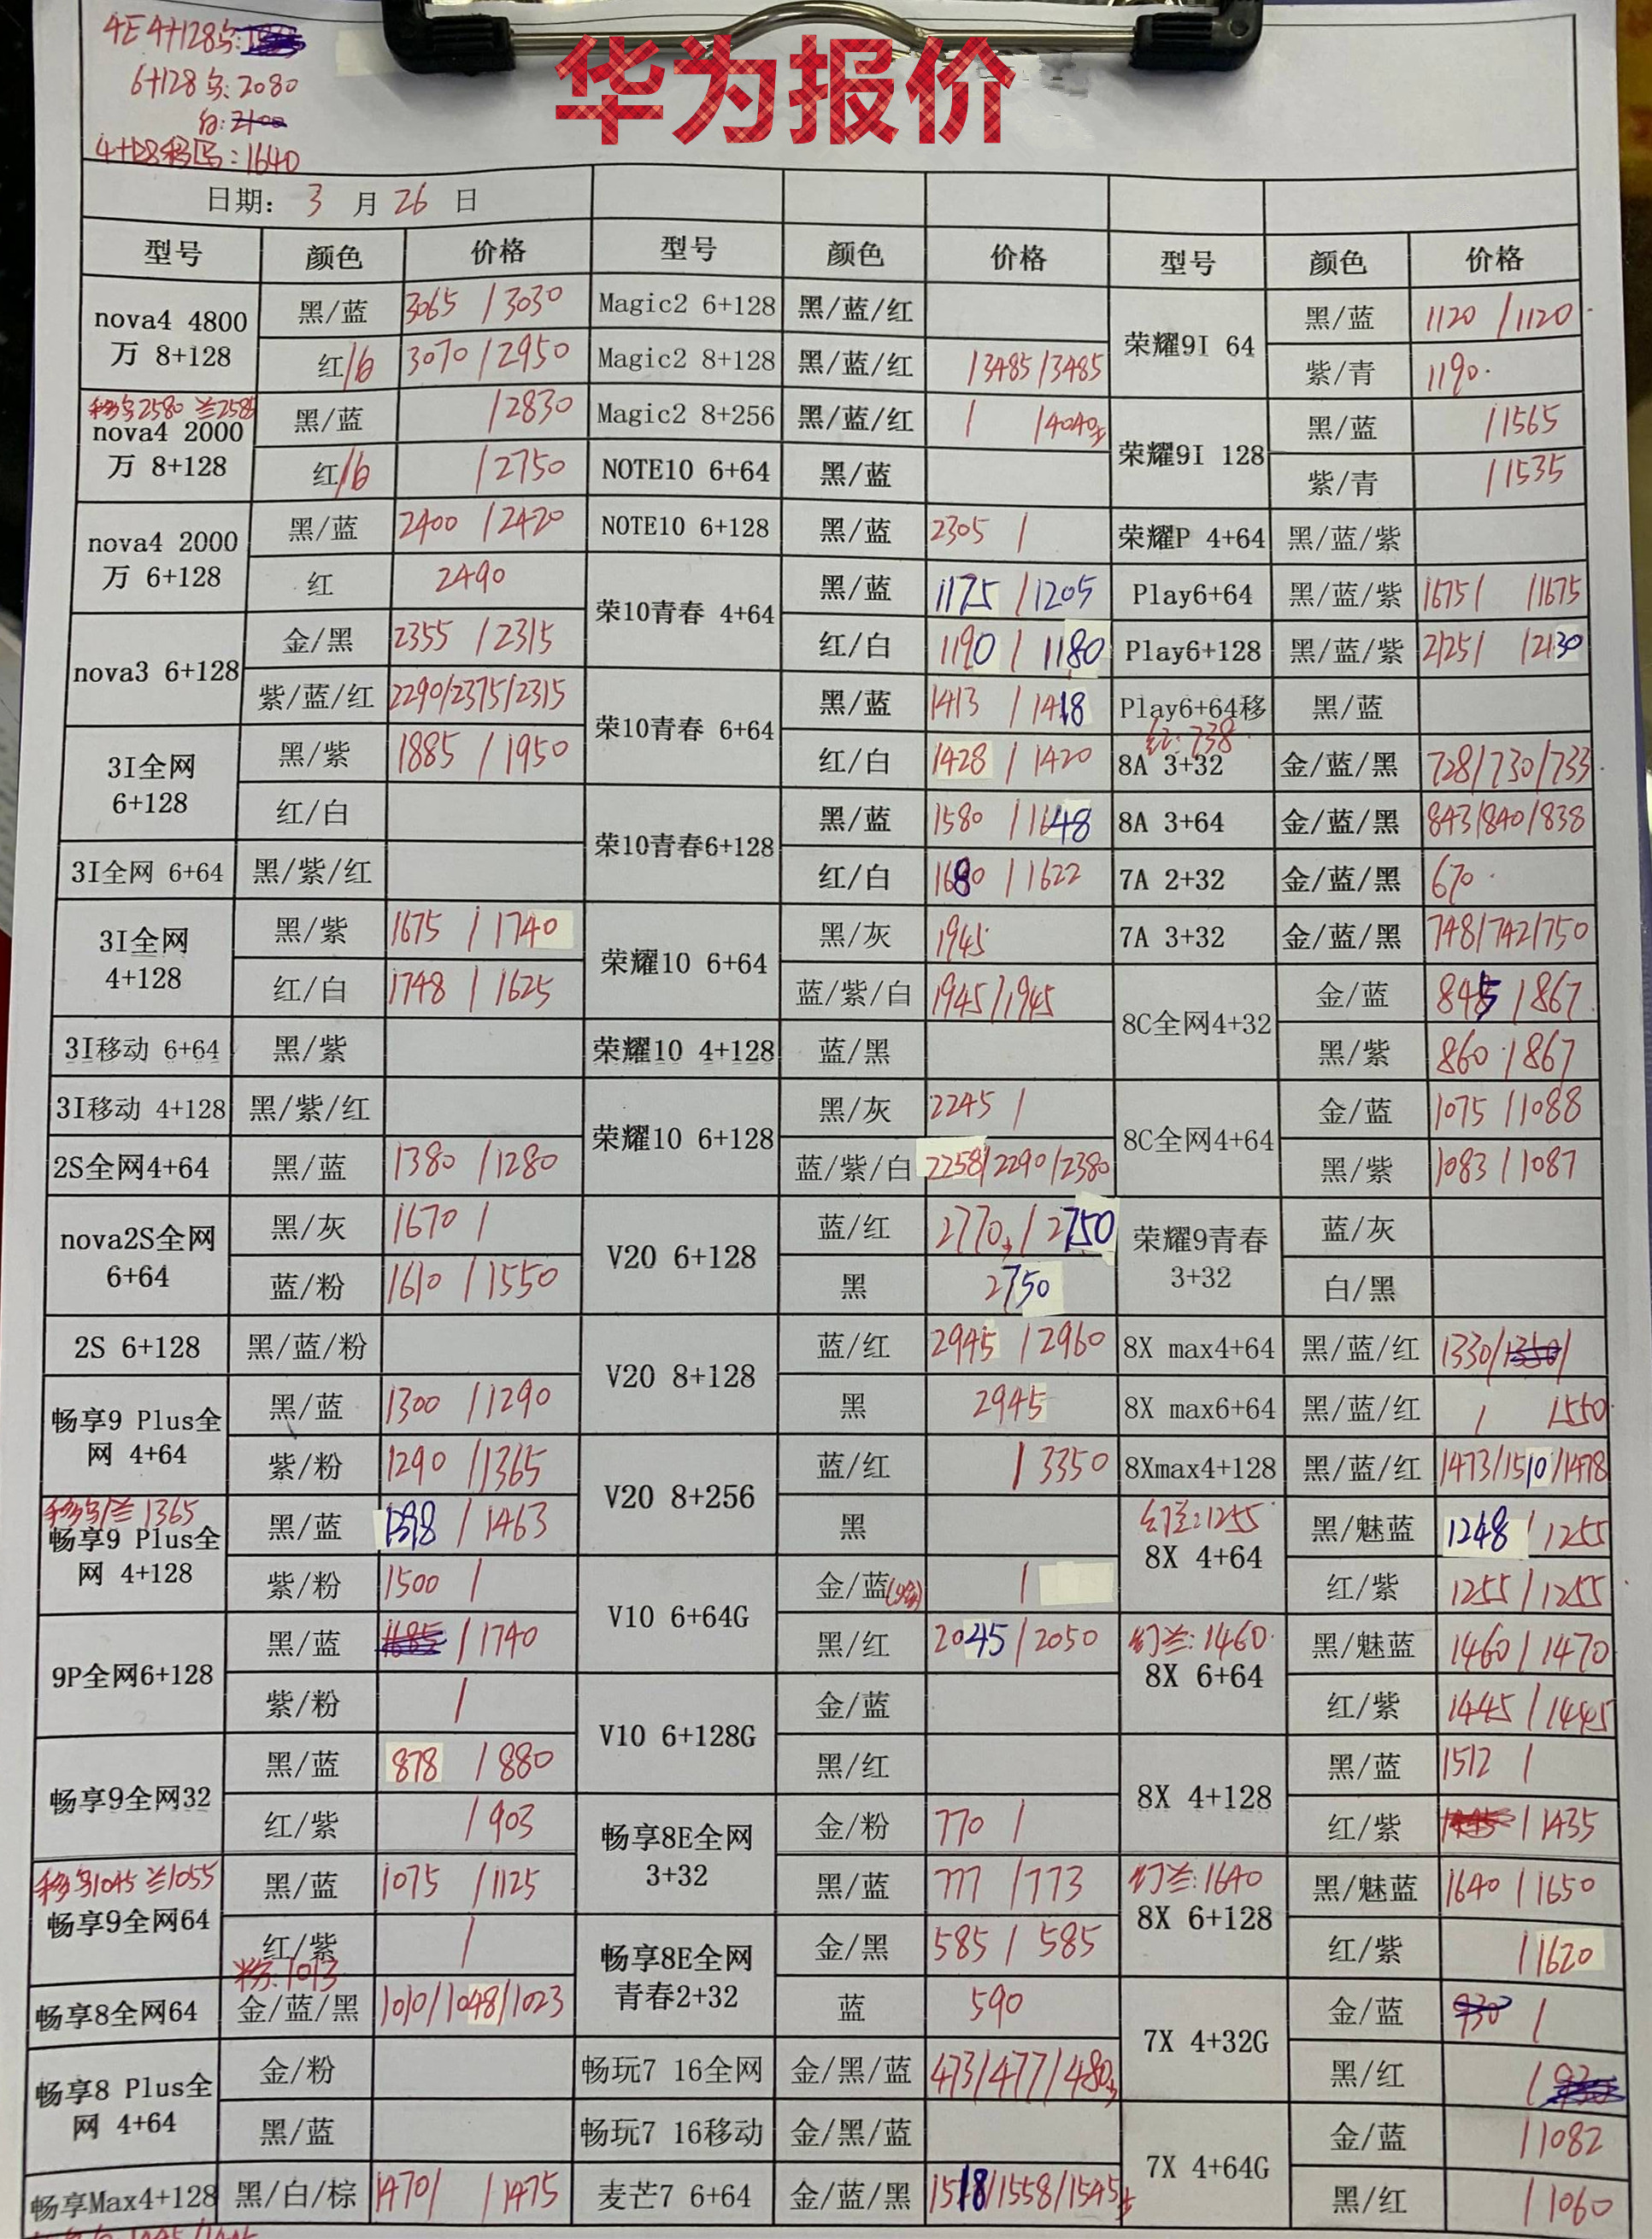 华为报价
4E 4+128
6+128 黑: 2080
白: 2100
4+128 移 : 1640
日期: 3 月 26 日
型号 颜色 价格 型号 颜色 价格 型号 颜色 价格
nova4 4800万 8+128 黑/蓝 3065 / 3030
红/白 3070 / 2950
移 2580 兰2585
nova4 2000万 8+128 黑/蓝 / 2830
红/白 / 2750
nova4 2000万 6+128 黑/蓝 2400 / 2420
红 2490
nova3 6+128 金/黑 2355 / 2315
紫/蓝/红 2290/2375/2315
3I全网 6+128 黑/紫 1885 / 1950
红/白
3I全网 6+64 黑/紫/红
3I全网 4+128 黑/紫 1675 / 1740
红/白 1748 / 1625
3I移动 6+64 黑/紫
3I移动 4+128 黑/紫/红
2S全网4+64 黑/蓝 1380 / 1280
nova2S全网 6+64 黑/灰 1670 /
蓝/粉 1610 / 1550
2S 6+128 黑/蓝/粉
畅享9 Plus全网 4+64 黑/蓝 1300 / 1290
紫/粉 1290 / 1365
移 兰 1365
畅享9 Plus全网 4+128 黑/蓝 / 1463
紫/粉 1500 /
9P全网6+128 黑/蓝 1685 / 1740
紫/粉 /
畅享9全网32 黑/蓝 878 / 880
红/紫 / 903
移 1045 兰1055
畅享9全网64 黑/蓝 1075 / 1125
红/紫 /
粉: 1013
畅享8全网64 金/蓝/黑 1010/1048/1023
畅享8 Plus全网 4+64 金/粉
黑/蓝
畅享Max4+128 黑/白/棕 1470/ / 1475
Magic2 6+128 黑/蓝/红
Magic2 8+128 黑/蓝/红 / 3485 / 3485
Magic2 8+256 黑/蓝/红 / / 4040
NOTE10 6+64 黑/蓝
NOTE10 6+128 黑/蓝 2305 /
荣10青春 4+64 黑/蓝 1175 / 1205
红/白 1190 / 1180
荣10青春 6+64 黑/蓝 1413 / 1418
红/白 1428 / 1420
荣10青春6+128 黑/蓝 1580 / 1648
红/白 1680 / 1622
荣耀10 6+64 黑/灰 1945
蓝/紫/白 1945/1945
荣耀10 4+128 蓝/黑
荣耀10 6+128 黑/灰 2245 /
蓝/紫/白 2258/2290/2380
V20 6+128 蓝/红 2770 / 2750
黑 2750
V20 8+128 蓝/红 2945 / 2960
黑 2945
V20 8+256 蓝/红 / 3350
黑
V10 6+64G 金/蓝 /
黑/红 2045 / 2050
V10 6+128G 金/蓝
黑/红
畅享8E全网 3+32 金/粉 770 /
黑/蓝 777 / 773
畅享8E全网青春2+32 金/黑 585 / 585
蓝 590
畅玩7 16全网 金/黑/蓝 473/477/480
畅玩7 16移动 金/黑/蓝
麦芒7 6+64 金/蓝/黑 1518/1558/1545
荣耀9I 64 黑/蓝 1120 / 1120
紫/青 1190
荣耀9I 128 黑/蓝 / 1565
紫/青 / 1535
荣耀P 4+64 黑/蓝/紫
Play6+64 黑/蓝/紫 1675/ / 1675
Play6+128 黑/蓝/紫 2125/ / 2130
Play6+64移 黑/蓝
红: 738
8A 3+32 金/蓝/黑 728/730/733
8A 3+64 金/蓝/黑 843/840/838
7A 2+32 金/蓝/黑 670
7A 3+32 金/蓝/黑 748/742/750
8C全网4+32 金/蓝 845 / 867
黑/紫 860 / 867
8C全网4+64 金/蓝 1075 / 1088
黑/紫 1083 / 1087
荣耀9青春 3+32 蓝/灰
白/黑
8X max4+64 黑/蓝/红 1330/1350/
8X max6+64 黑/蓝/红 / 1550
8Xmax4+128 黑/蓝/红 1473/1510/1478
幻兰: 1255
8X 4+64 黑/魅蓝 1248 / 1255
红/紫 1255 / 1255
幻兰: 1460
8X 6+64 黑/魅蓝 1460 / 1470
红/紫 1445 / 1445
8X 4+128 黑/蓝 1512 /
红/紫 / 1435
幻兰: 1640
8X 6+128 黑/魅蓝 1640 / 1650
红/紫 / 1620
7X 4+32G 金/蓝 930 /
黑/红 /
7X 4+64G 金/蓝 / 1082
黑/红 / 1060